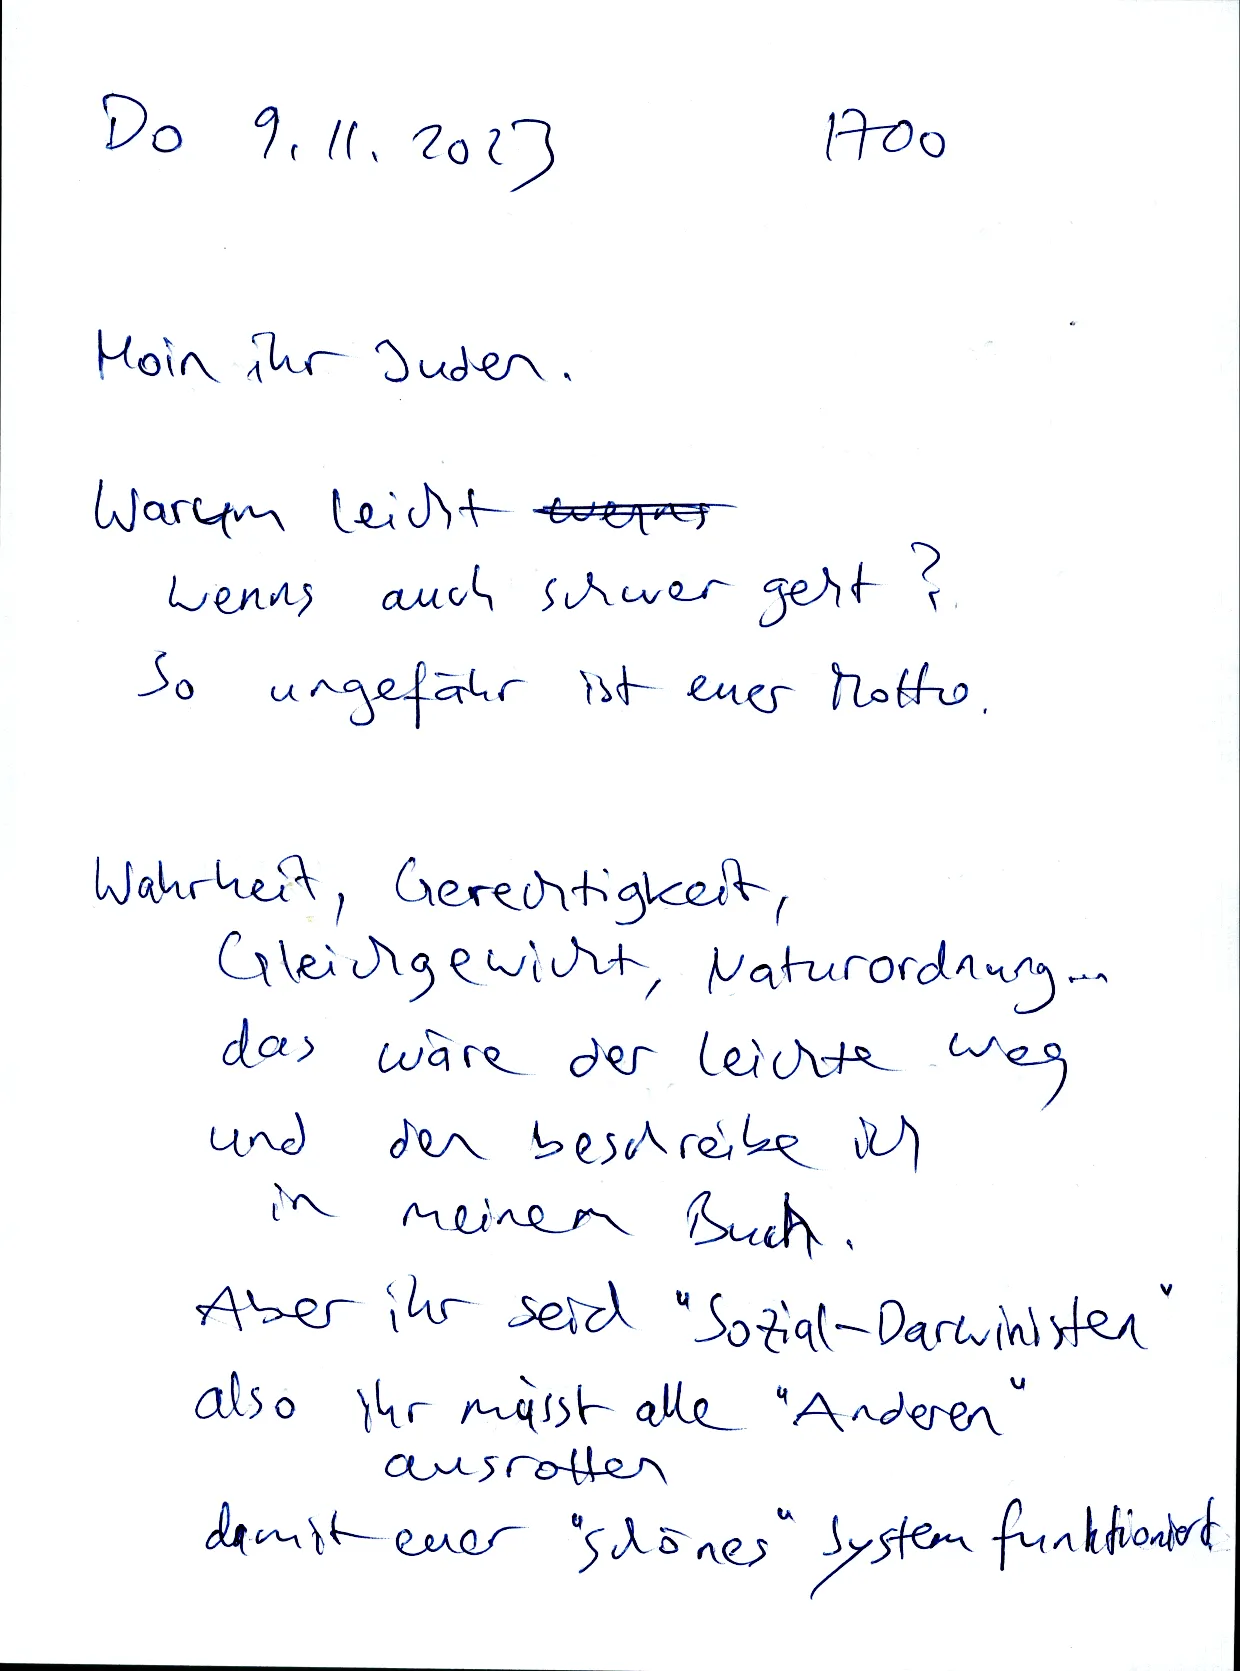 Do 9.11.2023 1700
Moin ihr Juden.
Warum leicht wenns
wenns auch schwer geht?
So ungefähr ist euer Motto.
Wahrheit, Gerechtigkeit,
Gleichgewicht, Naturordnung...
das wäre der leichte weg
und den beschreibe ich
in meinem Buch.
Aber ihr seid "Sozial-Darwinisten"
also ihr müsst alle "Anderen"
ausrotten
damit euer "schönes" System funktioniert